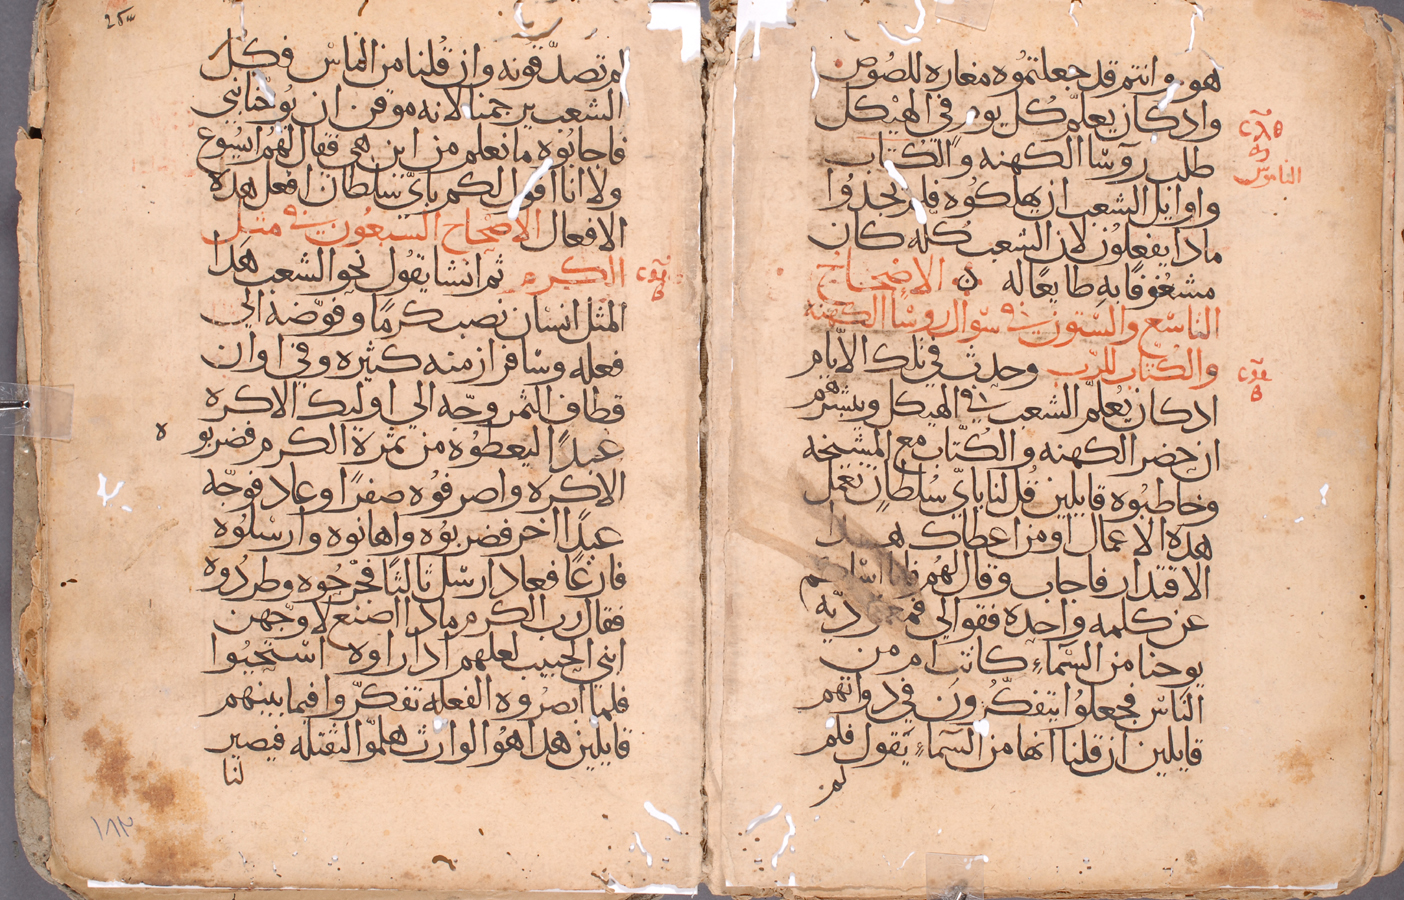 هو وانتم قد جعلتموه مغاره للصوص
واد كان يعلم كل يوم في الهيكل
طلب روسا الكهنه والكتاب
واوايل الشعب ان يهلكوه فلم يجدوا
مادا يفعلون لان الشعب كله كان
مشغوفا به طايعا له ن الاصحاح
التاسع والستون في سوال روسا الكهنه
والكتاب للرب وحدث في تلك الايام
اد كان يعلم الشعب في الهيكل ويبشرهم
ان حضر الكهنه والكتاب مع المشيخه
وخاطبوه قايلين قل لنا باي سلطان تعمل
هده الاعمال او من اعطاك هدا
الاقتدار فاجاب وقال لهم فانا اسالكم
عن كلمه واحده فقولوا لي
يوحنا من السماء كانت ام من
الناس فجعلوا يتفكرون في دواتهم
قايلين ان قلنا انها من السماء يقول فلم
لم
الناموس
لم تصدقونه وان قلنا من الناس فكل
الشعب يرجمنا لانه موقن ان يوحنا نبي
فاجابوه ما نعلم من اين هي فقال لهم ايسوع
ولا انا اقول لكم باي سلطان افعل هده
الافعال الاصحاح السبعون في مثل
الكرم ثم انشا يقول نحو الشعب هدا
المثل انسان نصب كرما وفوضه الي
فعله وسافر ازمنه كثيره وفي اوان
قطاف الثمر وجه الي اوليك الاكره
عبدا ليعطوه من ثمرة الكرم فضربو
الاكره واصرفوه صفرا وعاد فوجه
عبدا اخر فضربوه واهانوه وارسلوه
فارغا فعاد ارسل ثالثا فجرحوه وطردوه
فقال رب الكرم مادا اصنع لاوجهن
ابني الحبيب لعلهم ادا راوه استحيوا
فلما ابصروه الفعله تفكروا فيما بينهم
قايلين هدا هو الوارث هلموا لنقتله فيصير
لنا
١٨٣